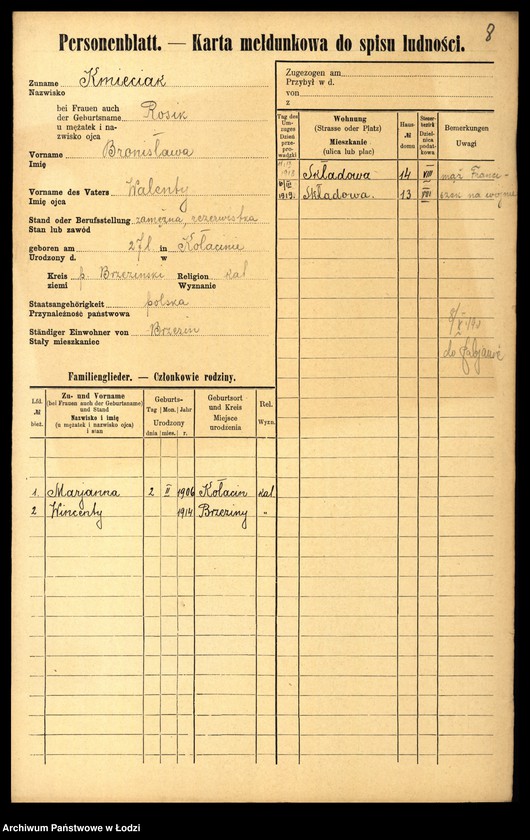 8
Personenblatt. — Karta meldunkowa do spisu ludności.
Zuname Kmieciak
Nazwisko
bei Frauen auch
der Geburtsname Rosik
u mężatek i na-
zwisko ojca
Vorname Bronisława
Imię
Vorname des Vaters Walenty
Imię ojca
Stand oder Berufsstellung zamężna, rezerwistka
Stan lub zawód
geboren am 27 l. in Kołacinie
Urodzony d. w
Kreis p. Brzezinski Religion kat
ziemi Wyznanie
Staatsangehörigkeit polska
Przynależność państwowa
Ständiger Einwohner von Brzezin
Stały mieszkaniec
Zugezogen am
Przybył w d.
von
z
Tag des Um-zuges Dzień prze-pro-wadzki
Wohnung (Strasse oder Platz) Mieszkanie (ulica lub plac)
Haus- № domu
Steuer-bezirk Dziel-nica podat-kowa
Bemerkungen Uwagi
Składowa 14 VIII mąż Franci-
1919. Składowa. 13 VIII szek na wojnie
do Pabjanic
Familienglieder. — Członkowie rodziny.
Lfd. № bież.
Zu- und Vorname (bei Frauen auch der Geburtsname) und Stand Nazwisko i imię (u mężatek i nazwisko ojca) i stan
Geburts- Tag Mon. Jahr Urodzony dnia mies. r.
Geburtsort und Kreis Miejsce urodzenia
Rel. Wyzn.
1. Marjanna 2 II 1906 Kołacin kat
2 Wincenty 1914 Brzeziny "
Archiwum Państwowe w Łodzi